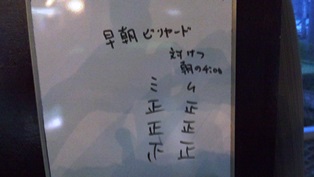 早朝ビリヤード
対けつ
朝の4:00
ミ ム
正 正
正 正
下 正